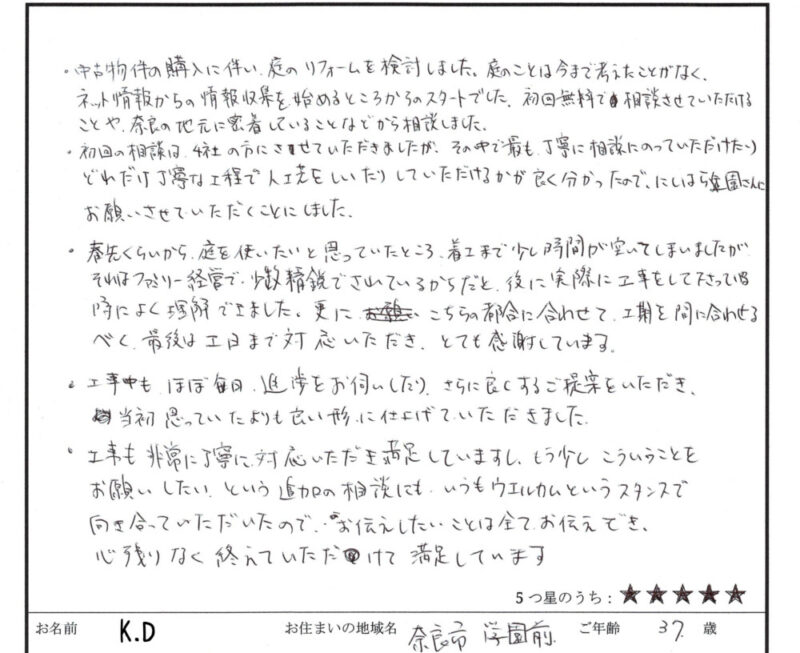 ・中古物件の購入に伴い、庭のリフォームを検討しました。庭のことは今まで考えたことがなく、
ネット情報からの情報収集を始めるところからのスタートでした。初回無料で相談させていただける
ことや、奈良の地元に密着していることなどから相談しました。
・初回の相談は、4社の方にさせていただきましたが、その中で最も丁寧に相談にのっていただけたり
どれだけ丁寧な工程で人工芝をしいたりしていただけるかが良く分かったので、にしはら楽園さんに
お願いさせていただくことにしました。
・春先くらいから、庭を使いたいと思っていたところ、着工まで少し時間が空いてしまいましたが
それはファミリー経営で、少数精鋭でされているからだと、後に実際に工事をして下さっている
時によく理解できました。更に こちらの都合に合わせて、工期を間に合わせる
べく、最後は 日まで対応いただき、とても感謝しています。
・工事中も、ほぼ毎日、進捗をお伺いしたり、さらに良くするご提案をいただき、
当初思っていたよりも良い形に仕上げていただきました。
・工事も非常に丁寧に対応いただき満足していますし、もう少しこういうことを
お願いしたい、という追加の相談にも、いつもウエルカムというスタンスで
向き合っていただいたので、お伝えしたいことは全てお伝えでき、
心残りなく終えていただけて満足しています
5つ星のうち：★★★★★
お名前 K.D お住まいの地域名 奈良市 学園前 ご年齢 37 歳